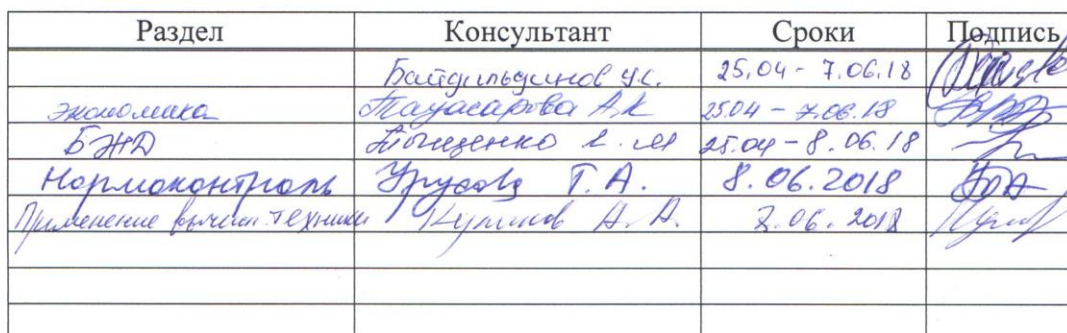 Раздел Консультант Сроки Подпись
Байдильдинов У.С. 25.04 - 7.06.18
экономика А.К 25.04 - 7.06.18
БЖД Тыщенко Е.М 25.04 - 8.06.18
Нормоконтроль Урусова Г.А. 8.06.2018
Применение вычисл. техники А.А. 06.2018